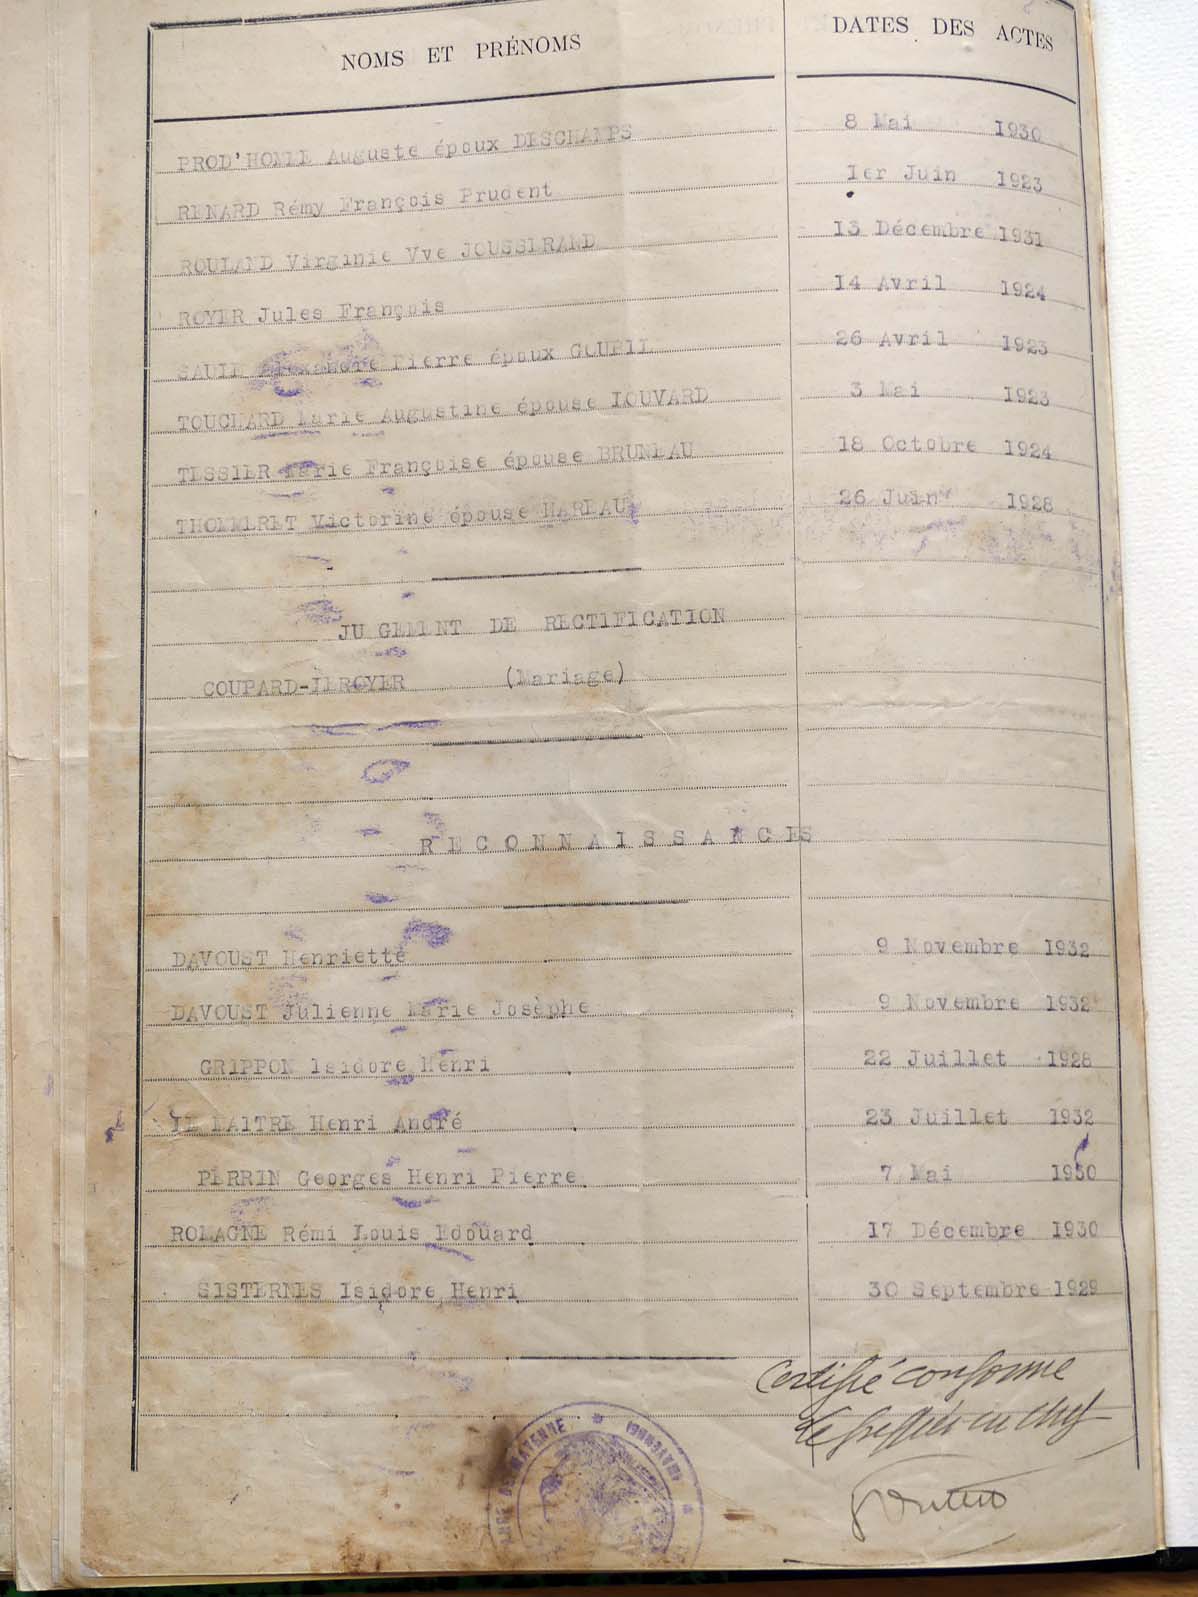 NOMS ET PRÉNOMS DATES DES ACTES
PROD'HOMME Auguste époux DESCHAMPS 8 Mai 1930
RENARD Rémy François Prudent 1er Juin 1923
ROULAND Virginie Vve JOUSSERAND 13 Décembre 1931
ROYER Jules François 14 Avril 1924
Pierre époux GOUPIL 26 Avril 1923
TOUCHARD Marie Augustine épouse LOUVARD 3 Mai 1923
TESSIER Marie Françoise épouse BRUNEAU 18 Octobre 1924
THOMMERET Victorine épouse MAREAU 26 Juin 1928
JUGEMENT DE RECTIFICATION
COUPARD-LEROYER (Mariage)
RECONNAISSANCES
DAVOUST Henriette 9 Novembre 1932
DAVOUST Julienne Marie Josèphe 9 Novembre 1932
GRIPPON Isidore Henri 22 Juillet 1928
LE MAITRE Henri André 23 Juillet 1932
PERRIN Georges Henri Pierre 7 Mai 1930
ROMAGNE Rémi Louis Edouard 17 Décembre 1930
SISTERNES Isidore Henri 30 Septembre 1929
Certifié conforme
le greffier en chef
MAYENNE